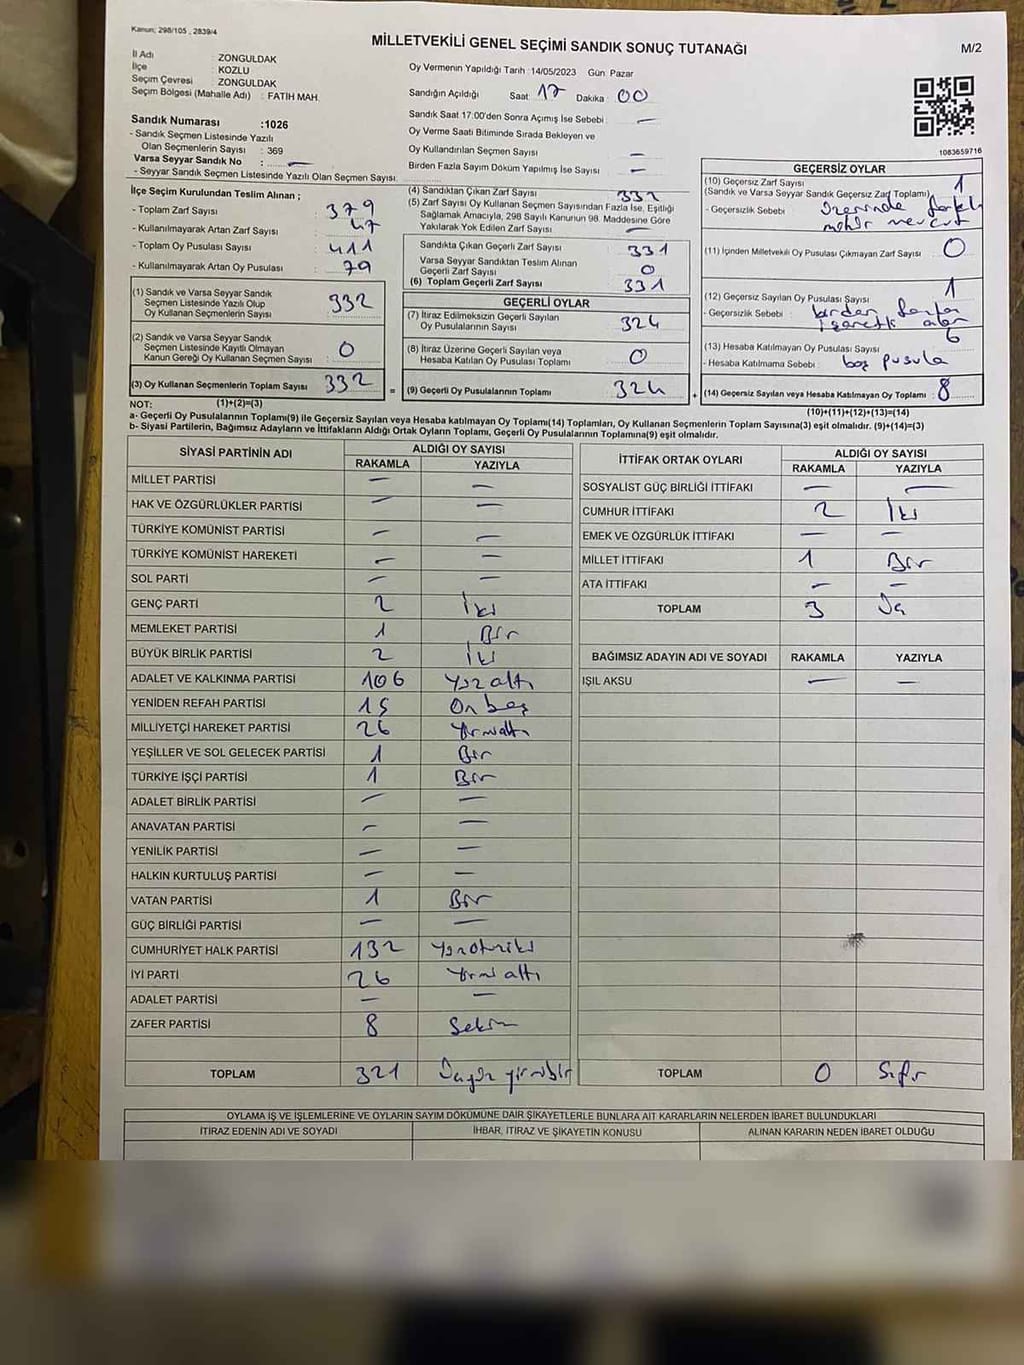 Kanun; 298/105 , 2839/4
MİLLETVEKİLİ GENEL SEÇİMİ SANDIK SONUÇ TUTANAĞI
M/2
İl Adı : ZONGULDAK
İlçe : KOZLU
Seçim Çevresi : ZONGULDAK
Seçim Bölgesi (Mahalle Adı) : FATİH MAH.
Sandık Numarası :1026
- Sandık Seçmen Listesinde Yazılı
Olan Seçmenlerin Sayısı : 369
Varsa Seyyar Sandık No : —
- Seyyar Sandık Seçmen Listesinde Yazılı Olan Seçmen Sayısı:
Oy Vermenin Yapıldığı Tarih :14/05/2023 Gün: Pazar
Sandığın Açıldığı Saat: 17 Dakika : 00
Sandık Saat 17:00'den Sonra Açımış İse Sebebi : —
Oy Verme Saati Bitiminde Sırada Bekleyen ve
Oy Kullandırılan Seçmen Sayısı : —
Birden Fazla Sayım Döküm Yapılmış İse Sayısı : —
1083659716
İlçe Seçim Kurulundan Teslim Alınan ;
- Toplam Zarf Sayısı : 379
- Kullanılmayarak Artan Zarf Sayısı : 47
- Toplam Oy Pusulası Sayısı : 411
- Kullanılmayarak Artan Oy Pusulası : 79
(1) Sandık ve Varsa Seyyar Sandık
Seçmen Listesinde Yazılı Olup
Oy Kullanan Seçmenlerin Sayısı : 332
(2) Sandık ve Varsa Seyyar Sandık
Seçmen Listesinde Kayıtlı Olmayan
Kanun Gereği Oy Kullanan Seçmen Sayısı : 0
(3) Oy Kullanan Seçmenlerin Toplam Sayısı : 332
(4) Sandıktan Çıkan Zarf Sayısı : 332
(5) Zarf Sayısı Oy Kullanan Seçmen Sayısından Fazla İse, Eşitliği
Sağlamak Amacıyla, 298 Sayılı Kanunun 98. Maddesine Göre
Yakılarak Yok Edilen Zarf Sayısı : —
Sandıkta Çıkan Geçerli Zarf Sayısı : 331
Varsa Seyyar Sandıktan Teslim Alınan
Geçerli Zarf Sayısı : 0
(6) Toplam Geçerli Zarf Sayısı : 331
GEÇERLİ OYLAR
(7) İtiraz Edilmeksizin Geçerli Sayılan
Oy Pusulalarının Sayısı : 324
(8) İtiraz Üzerine Geçerli Sayılan veya
Hesaba Katılan Oy Pusulası Toplamı : 0
= (9) Geçerli Oy Pusulalarının Toplamı : 324
GEÇERSİZ OYLAR
(10) Geçersiz Zarf Sayısı 1
(Sandık ve Varsa Seyyar Sandık Geçersiz Zarf Toplamı)
- Geçersizlik Sebebi : Üzerinde farklı
mühür mevcut
(11) İçinden Milletvekili Oy Pusulası Çıkmayan Zarf Sayısı : 0
(12) Geçersiz Sayılan Oy Pusulası Sayısı : 1
- Geçersizlik Sebebi : birden fazla
işaretli alan
(13) Hesaba Katılmayan Oy Pusulası Sayısı : 6
- Hesaba Katılmama Sebebi : boş pusula
+ (14) Geçersiz Sayılan veya Hesaba Katılmayan Oy Toplamı : 8
NOT: (1)+(2)=(3)
(10)+(11)+(12)+(13)=(14)
a- Geçerli Oy Pusulalarının Toplamı(9) ile Geçersiz Sayılan veya Hesaba katılmayan Oy Toplamı(14) Toplamları, Oy Kullanan Seçmenlerin Toplam Sayısına(3) eşit olmalıdır. (9)+(14)=(3)
b- Siyasi Partilerin, Bağımsız Adayların ve İttifakların Aldığı Ortak Oyların Toplamı, Geçerli Oy Pusulalarının Toplamına(9) eşit olmalıdır.
SİYASİ PARTİNİN ADI ALDIĞI OY SAYISI
RAKAMLA YAZIYLA
MİLLET PARTİSİ — —
HAK VE ÖZGÜRLÜKLER PARTİSİ — —
TÜRKİYE KOMÜNİST PARTİSİ — —
TÜRKİYE KOMÜNİST HAREKETİ — —
SOL PARTİ — —
GENÇ PARTİ 2 İki
MEMLEKET PARTİSİ 1 Bir
BÜYÜK BİRLİK PARTİSİ 2 İki
ADALET VE KALKINMA PARTİSİ 106 Yüz altı
YENİDEN REFAH PARTİSİ 15 On beş
MİLLİYETÇİ HAREKET PARTİSİ 26 Yirmialtı
YEŞİLLER VE SOL GELECEK PARTİSİ 1 Bir
TÜRKİYE İŞÇİ PARTİSİ 1 Bir
ADALET BİRLİK PARTİSİ — —
ANAVATAN PARTİSİ — —
YENİLİK PARTİSİ — —
HALKIN KURTULUŞ PARTİSİ — —
VATAN PARTİSİ 1 Bir
GÜÇ BİRLİĞİ PARTİSİ — —
CUMHURİYET HALK PARTİSİ 132 Yüzotuziki
İYİ PARTİ 26 Yirmi altı
ADALET PARTİSİ — —
ZAFER PARTİSİ 8 Sekiz
TOPLAM 321 Üçyüz yirmibir
İTTİFAK ORTAK OYLARI ALDIĞI OY SAYISI
RAKAMLA YAZIYLA
SOSYALİST GÜÇ BİRLİĞİ İTTİFAKI — —
CUMHUR İTTİFAKI 2 İki
EMEK VE ÖZGÜRLÜK İTTİFAKI — —
MİLLET İTTİFAKI 1 Bir
ATA İTTİFAKI — —
TOPLAM 3 Üç
BAĞIMSIZ ADAYIN ADI VE SOYADI RAKAMLA YAZIYLA
IŞIL AKSU — —
TOPLAM 0 Sıfır
OYLAMA İŞ VE İŞLEMLERİNE VE OYLARIN SAYIM DÖKÜMÜNE DAİR ŞİKAYETLERLE BUNLARA AİT KARARLARIN NELERDEN İBARET BULUNDUKLARI
İTİRAZ EDENİN ADI VE SOYADI İHBAR, İTİRAZ VE ŞİKAYETİN KONUSU ALINAN KARARIN NEDEN İBARET OLDUĞU